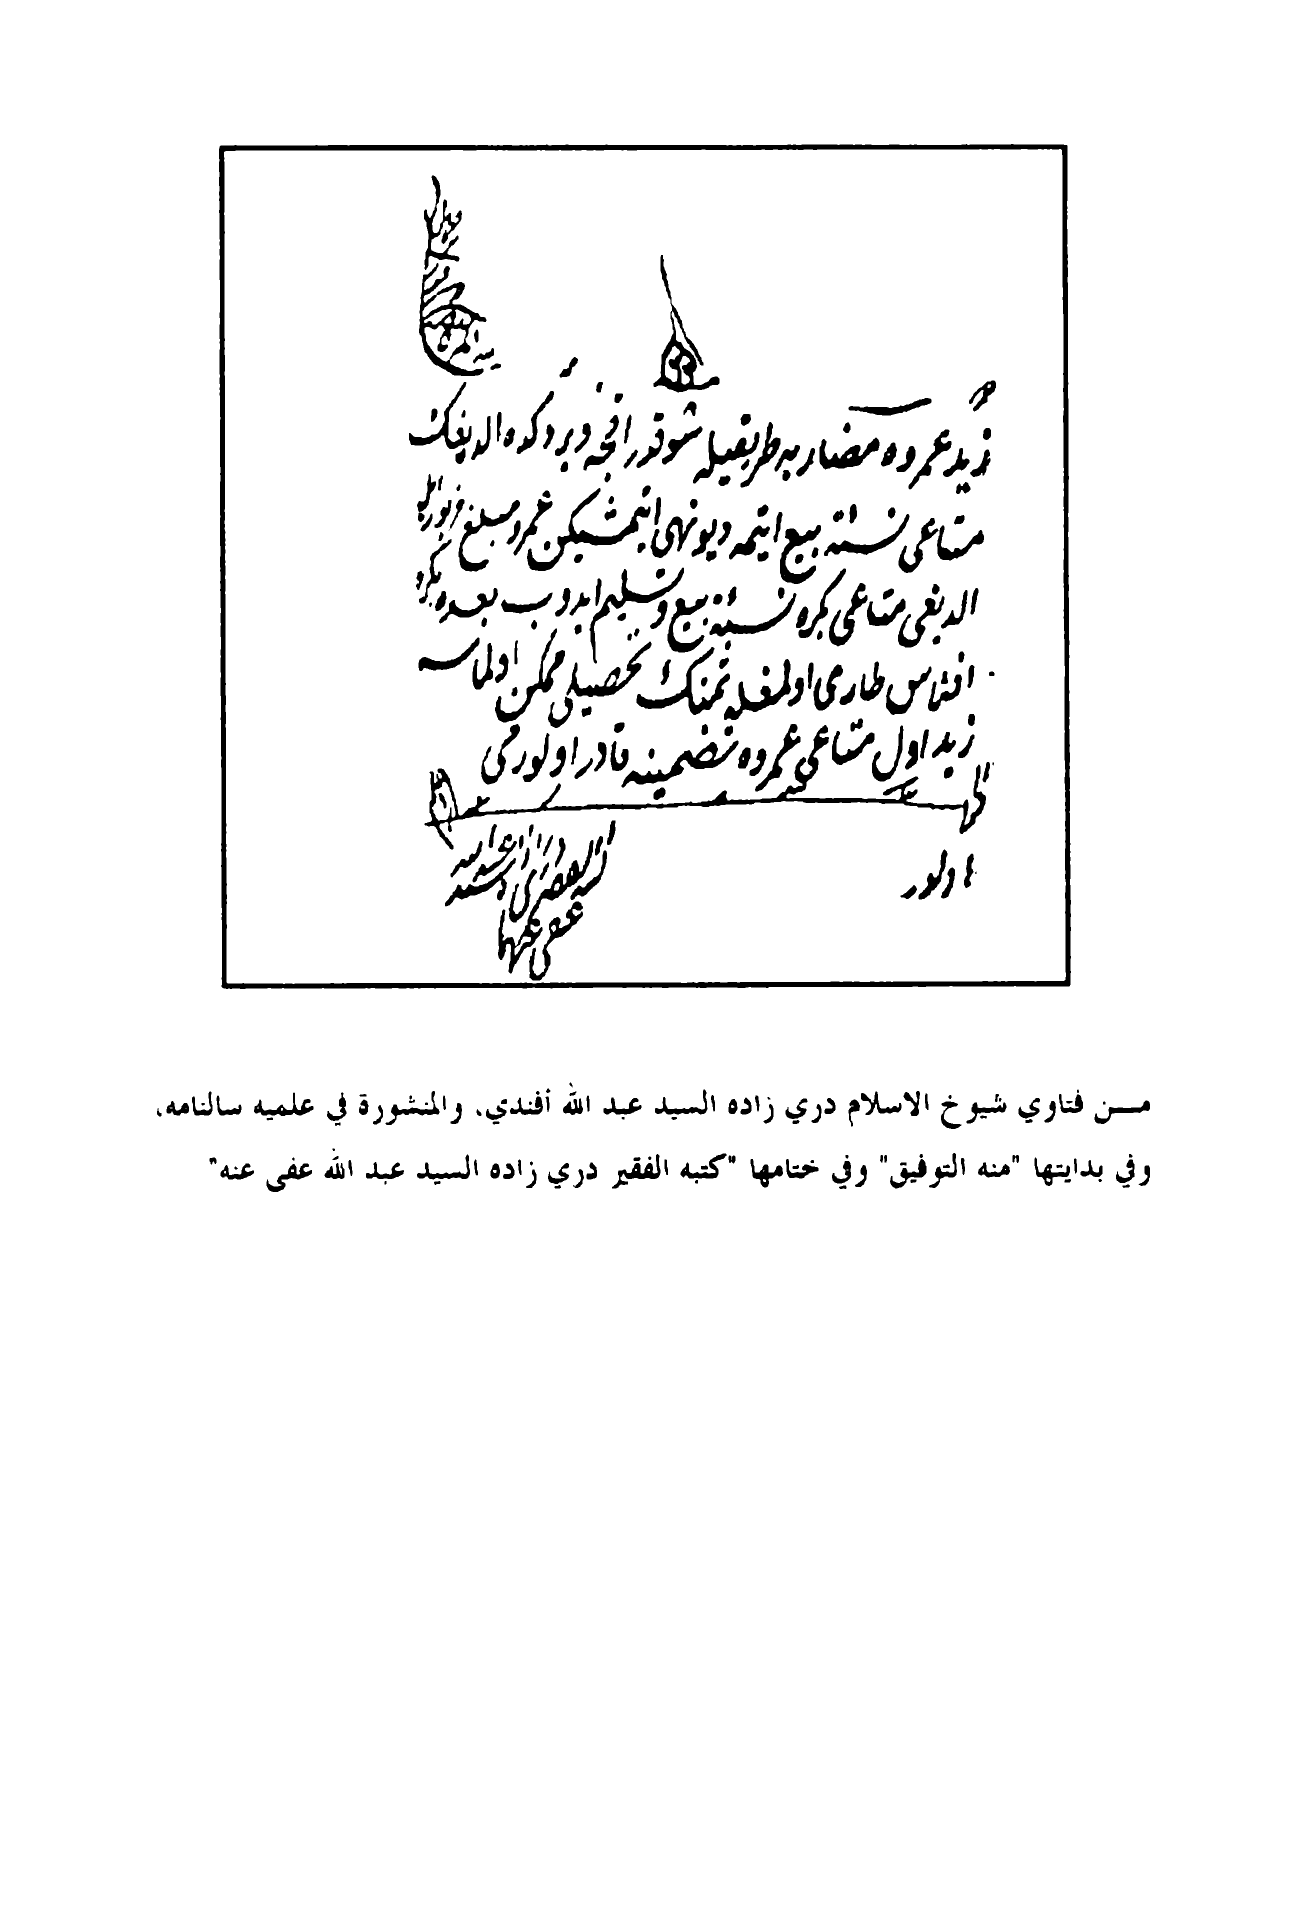 زيد عمروه مضاربه طريقيله شو قدر اقچه ويردكده الديغك
متاعى نسئة بيع ايتمه ديو نهى ايتمشيكن عمرو مبلغ مزبور ايله
الديغى متاعى بكره نسئة بيع وتسليم ايدوب بعده بكره
افلاس طارى اولمغله ثمنك تحصيلى ممكن اولماسه
زيد اول متاعى عمروه تضمينه قادر اولورمى
اولور
من فتاوي شيوخ الاسلام دري زاده السيد عبد الله أفندي، والمنشورة في علميه سالنامه،
وفي بدايتها "منه التوفيق" وفي ختامها "كتبه الفقير دري زاده السيد عبد الله عفى عنه"